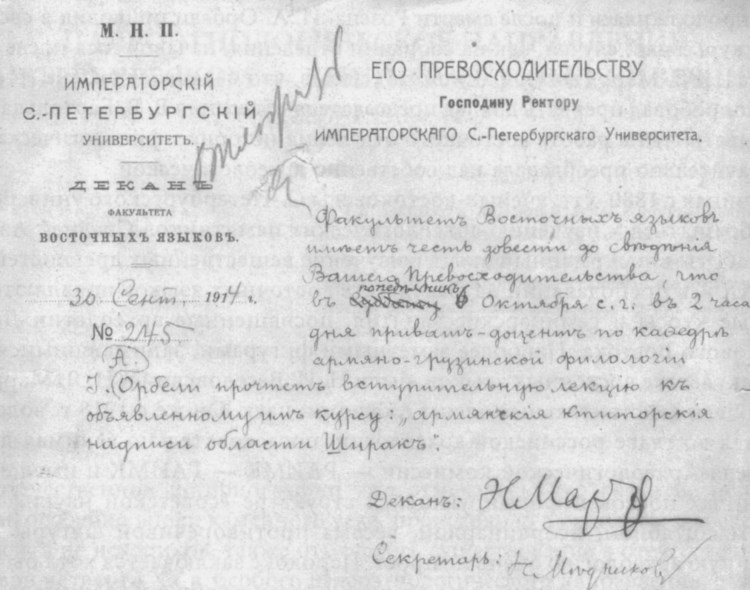 М. Н. П.
ИМПЕРАТОРСКІЙ
С.-ПЕТЕРБУРГСКІЙ
УНИВЕРСИТЕТЪ.
ДЕКАНЪ
ФАКУЛЬТЕТА
ВОСТОЧНЫХЪ ЯЗЫКОВЪ.
30 Сент. 1914 г.
№ 245
ЕГО ПРЕВОСХОДИТЕЛЬСТВУ
Господину Ректору
ИМПЕРАТОРСКАГО С.-Петербургскаго Университета.
Факультетъ Восточныхъ языковъ
имѣетъ честь довести до свѣдѣнія
Вашего Превосходительства, что
въ понедѣльникъ 6 Октября с. г. въ 2 часа
дня приватъ-доцентъ по каѳедрѣ
армяно-грузинской филологіи
І. А. Орбели прочтетъ вступительную лекцію къ
объявленному имъ курсу „армянскія ктиторскія
надписи области Ширакъ.
Деканъ: Н Марръ
Секретарь: Н Мѣдниковъ